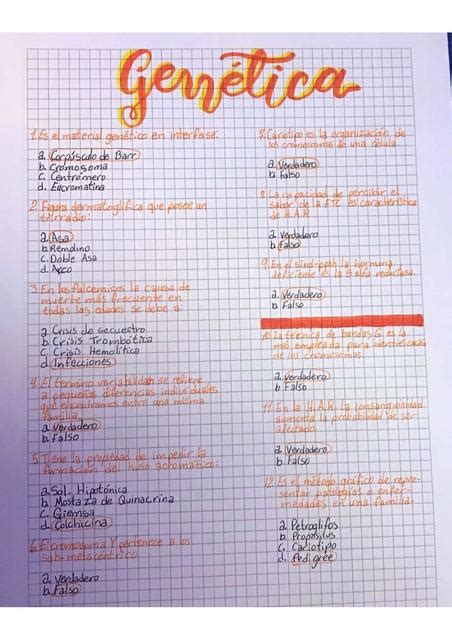 Genética
1. Es el material genético en interfase:
a. Corpúsculo de Barr
b. Cromosoma
c. Centrómero
d. Eucromatina
2. Figura dermatoglifica que posee un
trirradio:
a. Asa
b. Remolino
c. Doble Asa
d. Arco
3. En los falcemicos la causa de
muerte más frecuente en
todas las edades se debe a:
a. Crisis de secuestro
b. Crisis Trombótica
c. Crisis Hemolítica
d. Infecciones
4. El termino variabilidad se refiere
a pequeñas diferencias individuales
que encontramos entre una misma
familia
a. Verdadero
b. Falso
5. Tiene la propiedad de impedir la
formación del huso acromático:
a. Sol. Hipotónica
b. Mostaza de Quinacrina
c. Giemsa
d. Colchicina
6. El cromosoma Y pertenece a los
sub-metacéntrico
a. Verdadero
b. Falso
7. Cariotipo es la organización de
los cromosomas de una célula.
a. Verdadero
b. Falso
8. La capacidad de percibir el
sabor de la FTC es característica
de H.A.R
a. Verdadero
b. Falso
9. En el sind. la hormona
deficiente es la 5 alfa reductasa.
a. Verdadero
b. Falso
10. La técnica de bandas G es la
más empleada para identificación
de los cromosomas.
a. Verdadero
b. Falso
11. En la H.A.R. la consanguinidad
aumenta la probabilidad de ser
afectado.
a. Verdadero
b. Falso
12. Es el método gráfico de repre-
sentar patologías o enfer-
medades en una familia:
a. Petroglifos
b. Propósitus
c. Cariotipo
d. Pedigree